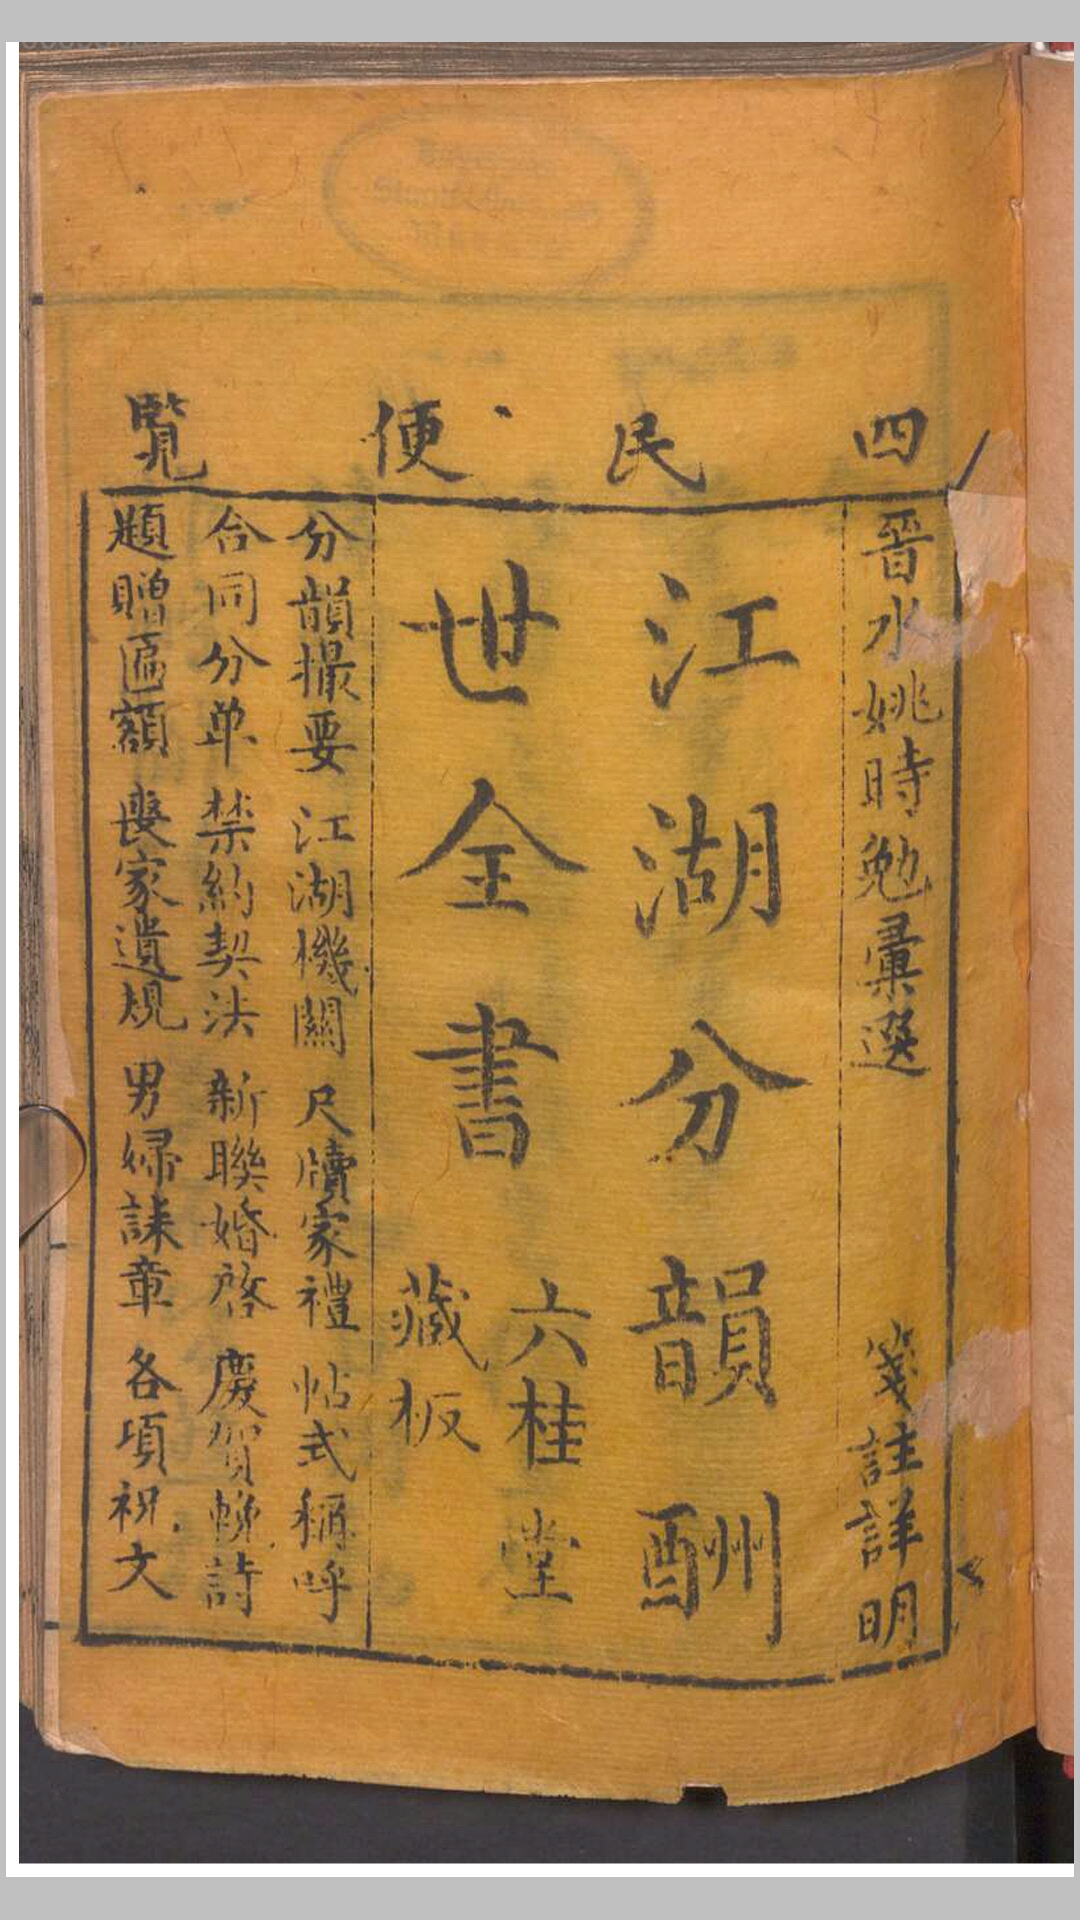 四民便覽
晉水姚時勉彙選 箋註詳明
江湖分韻酬
世全書
六桂堂
藏板
分韻撮要 江湖機關 尺牘家禮 帖式稱呼
合同分单 禁約契法 新聯婚啓 慶賀輓詩
題贈匾額 喪家遺規 男婦誄章 各項祝文